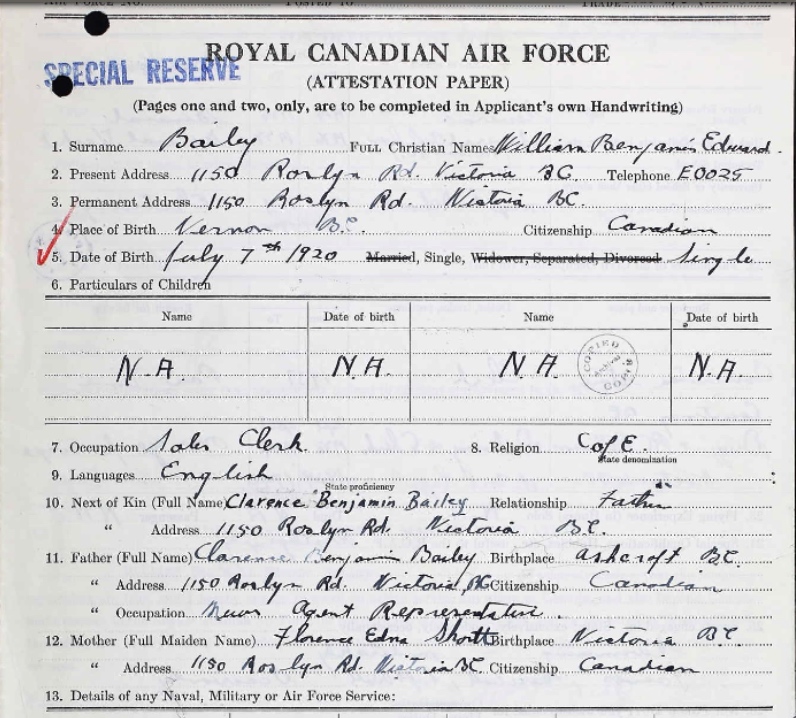 ROYAL CANADIAN AIR FORCE
SPECIAL RESERVE
(ATTESTATION PAPER)
(Pages one and two, only, are to be completed in Applicant's own Handwriting)
1. Surname Bailey FULL Christian Names William Benjamin Edward.
2. Present Address 1150 Roslyn Rd. Victoria BC. Telephone E0025
3. Permanent Address 1150 Roslyn Rd. Victoria BC.
4. Place of Birth Vernon B.C. Citizenship Canadian
5. Date of Birth July 7th 1920 Married, Single, Widower, Separated, Divorced Single
6. Particulars of Children
Name Date of birth Name Date of birth
N.A. N.A. N.A. N.A.
COPIED
7. Occupation Sales Clerk. 8. Religion C of E.
State denomination
9. Languages English
State proficiency
10. Next of Kin (Full Name) Clarence Benjamin Bailey Relationship Father
" Address 1150 Roslyn Rd. Victoria B.C.
11. Father (Full Name) Clarence Benjamin Bailey Birthplace Ashcroft B.C.
" Address 1150 Roslyn Rd. Victoria, BC Citizenship Canadian
" Occupation News Agent Representative.
12. Mother (Full Maiden Name) Florence Edna Shortt Birthplace Victoria B.C.
" Address 1150 Roslyn Rd. Victoria BC. Citizenship Canadian
13. Details of any Naval, Military or Air Force Service: